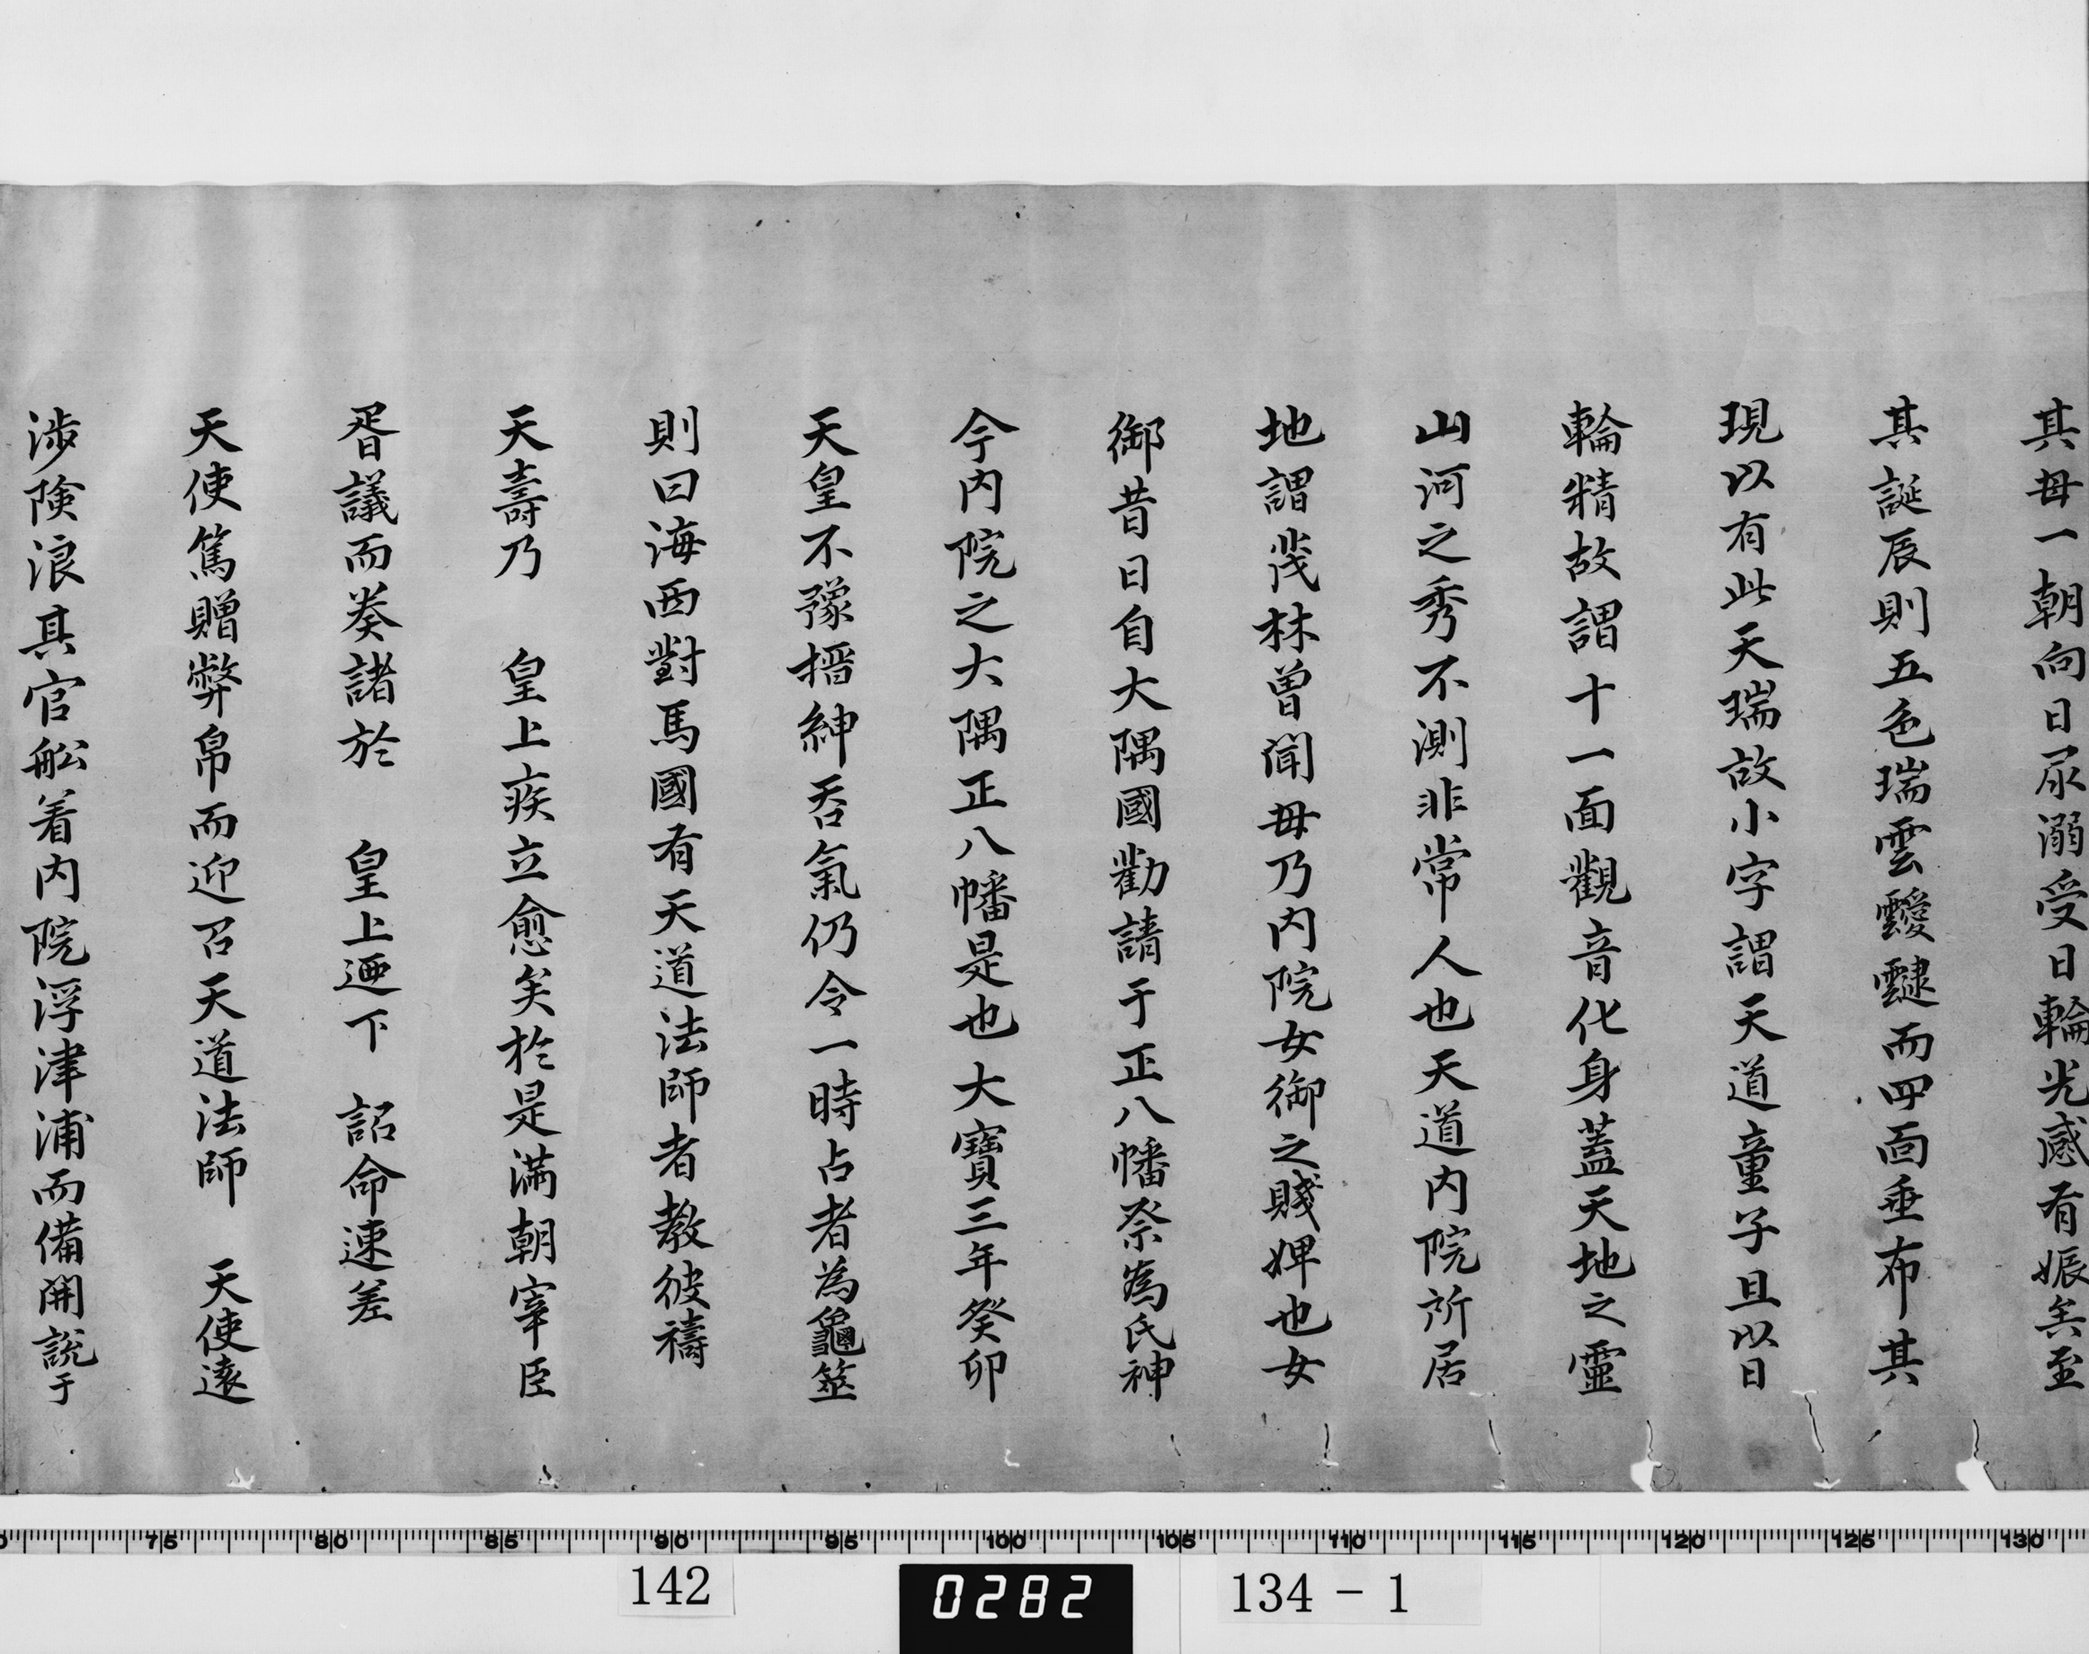 其母一朝向日尿溺受日輪光感有娠矣至
其誕辰則五色瑞雲靉靆而四面垂布其
現以有此天瑞故小字謂天道童子且以日
輪精故謂十一面觀音化身蓋天地之靈
山河之秀不測非常人也天道内院所居
地謂茂林曽聞母乃内院女御之賤婢也女
御昔日自大隅國勸請于正八幡祭為氏神
今内院之大隅正八幡是也大寶三年癸卯
天皇不豫搢紳呑氣仍令一時占者為龜筮
則曰海西對馬國有天道法師者教彼禱
天壽乃　皇上疾立愈矣於是満朝宰臣
胥議而奏諸於　皇上迺下　詔命速差
天使篤贈弊帛而迎召天道法師　天使遠
渉険浪其官舩着内院浮津浦而備開説于
75 80 85 90 95 100 105 110 115 120 125 130
142
0282
134－1